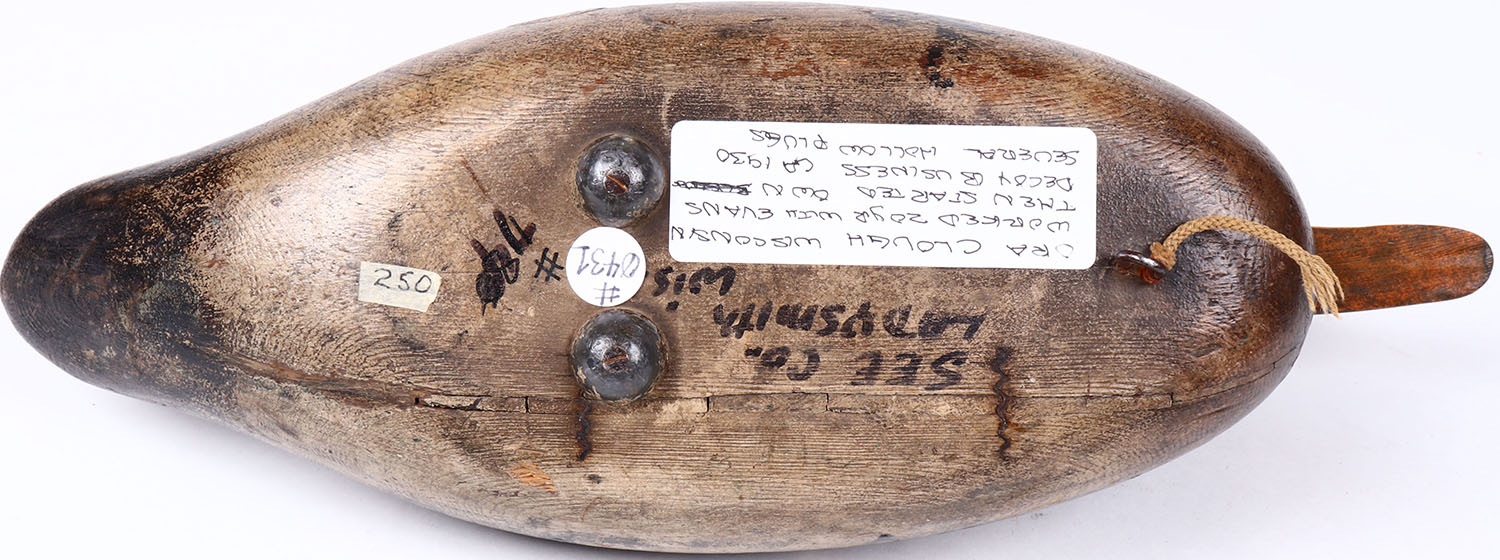 ORA CLOUGH WISCONSIN
WORKED 20YR WITH EVANS
THEN STARTED OWN
DECOY BUSINESS CA 1930
SEVERAL HOLLOW PLUGS
SEE CO.
LADYSMITH
WIS
#
0431
#
250